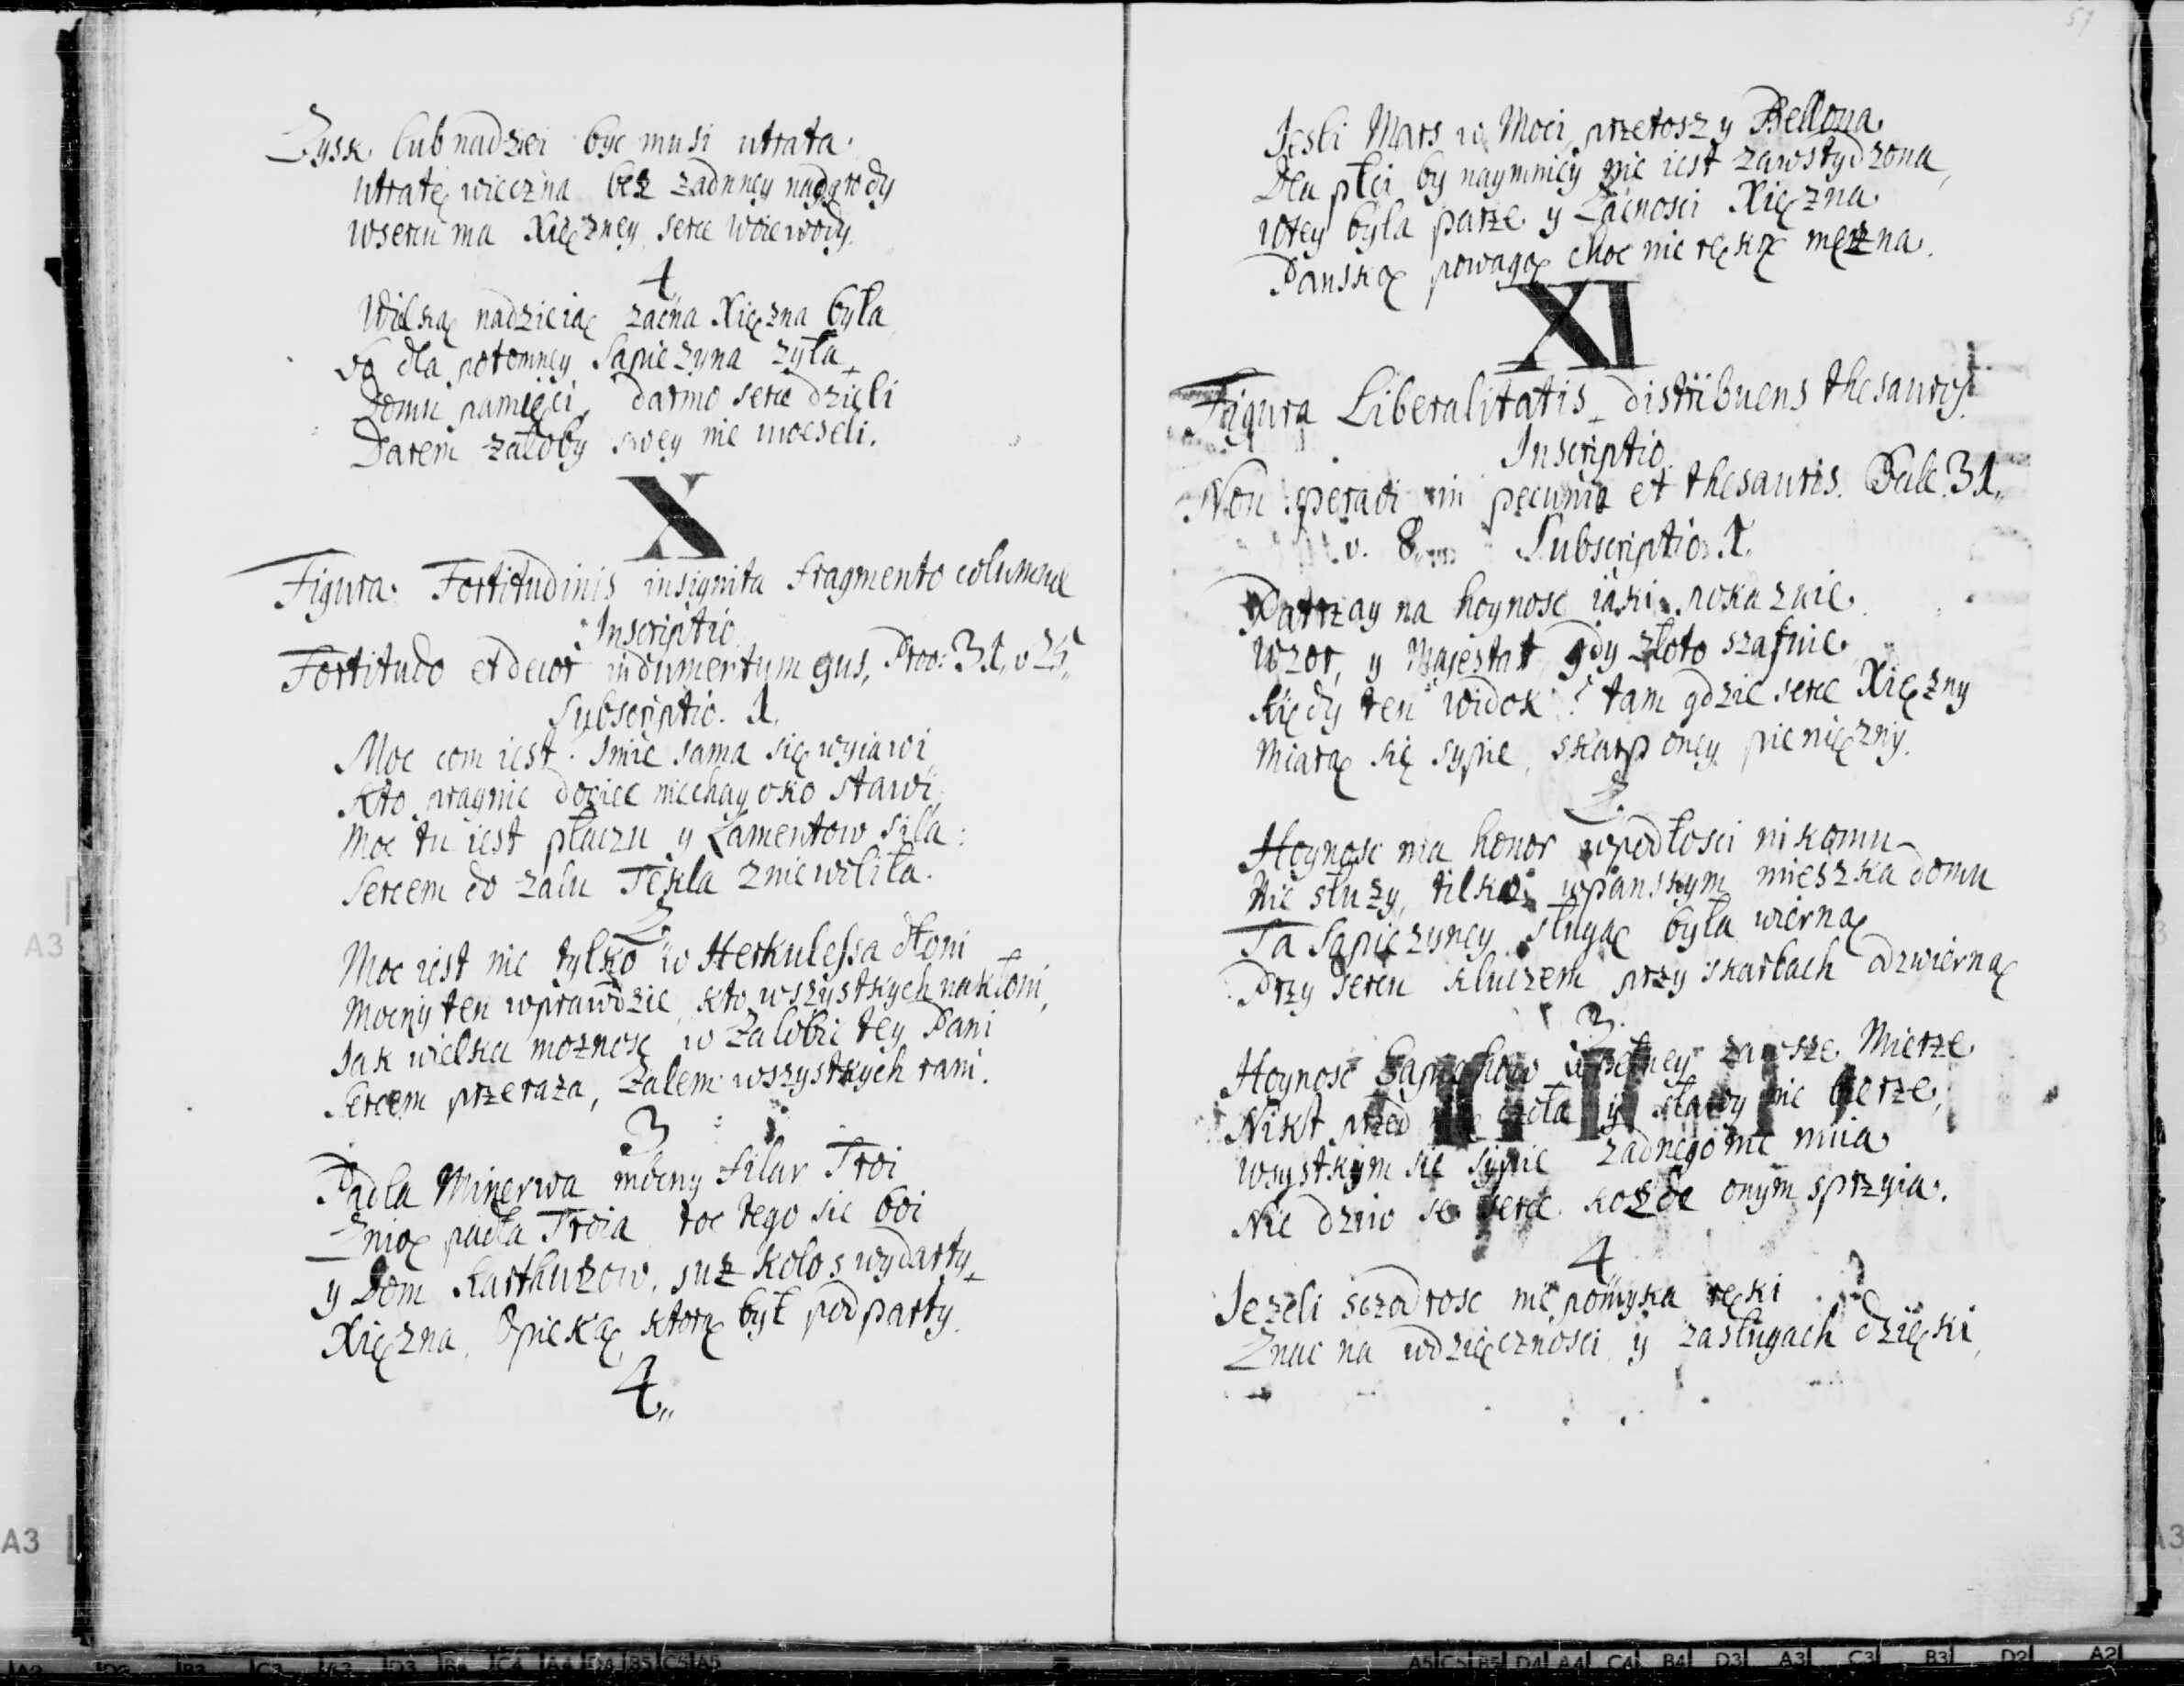 Zysk lub nadziei byc musi utrata
utratę wieczna bez zadnney nadgrody
wsercu ma Xięzney serce woiewody
4
Wilską nadzieią zacna Xięzna była
dla potomney Sapiezyna zyła
Domu pamięci, darmo serce dzieli
Darem załoby swey nie
X
Figura Fortitudinis insignita fragmento columnae
Inscriptio
Fortitudo et decor indumentum eius, Prov: 31, v 25,
Subscriptio. 1.
Moc com iest. Imie sama się wyiawi
Kto pragnie dociec niechay oko stawi
Moc tu iest płaczu y Lamentow siła:
Sercem do zalu Tekla zniewoliła.
2.
Moc iest nie tylko w Herkulessa dłoni
Mocny ten wprawdzie, kto wszystkych nakłoni,
Jak wielka moznosc w Załobie tey Pani
Sercem przeraza, Zalem wszystkych rani.
3
Padła Minerwa mocny filar Troi
Znią padła Troia toc tego sie boi
y Dom Karthuzow, juz kolos wydarty
Xięzna, Opieką, ktorą był podparty.
4,,
57
Jesli Mars w Moci przetoszy Bellona
Dla płci by naymniey nie iest zawstydzona,
wtey była parze y Zacnosci Xięzna
Panską powagą choc nie ręką męzna.
XI
Figura Liberalitatis distribuens thesauros.
Inscriptio
Non speravi in pecunia et thesauris. Eccle. 31,,
v. 8. Subscriptio. 1.
Patrzay na hoynosc iaki pokazuie
Wzor, y Majestat gdy złoto szafuie
Kiędy ten widok? tam gdzie serce Xięzny
Miarą się sypie, skarp oney pienięzny.
2.
Hoynosc ma honor wpodłosci nikomu
Nie słuzy, tilko wpanskym mieszka domu
Ta Sapiezyney sługą była wierną
Przy sercu kluczem przy skarbach odzwierną
3.
Hoynosc Sapiehow zawsze Mierze
Nikt przed czoła y sławy nie bierze,
Wsystkym sie sypie zadnego nie miia
Nie dziw se serce kozde onym sprzyia.
4
Jezeli sczodrosc nie pomyka ręki
Znac na wdzięcznosci y zasługach dzięki,